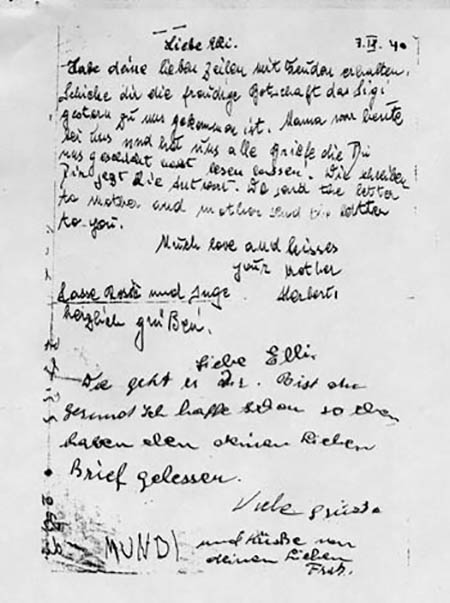 Liebe Elli. 7.IX.40
Habe deine lieben Zeilen mit Freuden erhalten.
Schicke dir die freudige Botschaft das Sigi
gestern zu uns gekommen ist. Mama war heute
bei uns und hat uns alle Briefe die Du
uns geschickt hast lesen lassen. Wir schreiben
Dir jezt die Antwort. We send the letter
to mother and mother send the letter
to you.
Much love and kisses
your
Herbert.
Lasse Rosie und Inge
herzlich grüßen.
Liebe Elli.
Wie geht es Dir. Bist du
gesund Ich hoffe schon so eben
haben den deinen lieben
Brief gelessen.
Viele grüsse
MUNDI und Küsse von
deinen Lieben